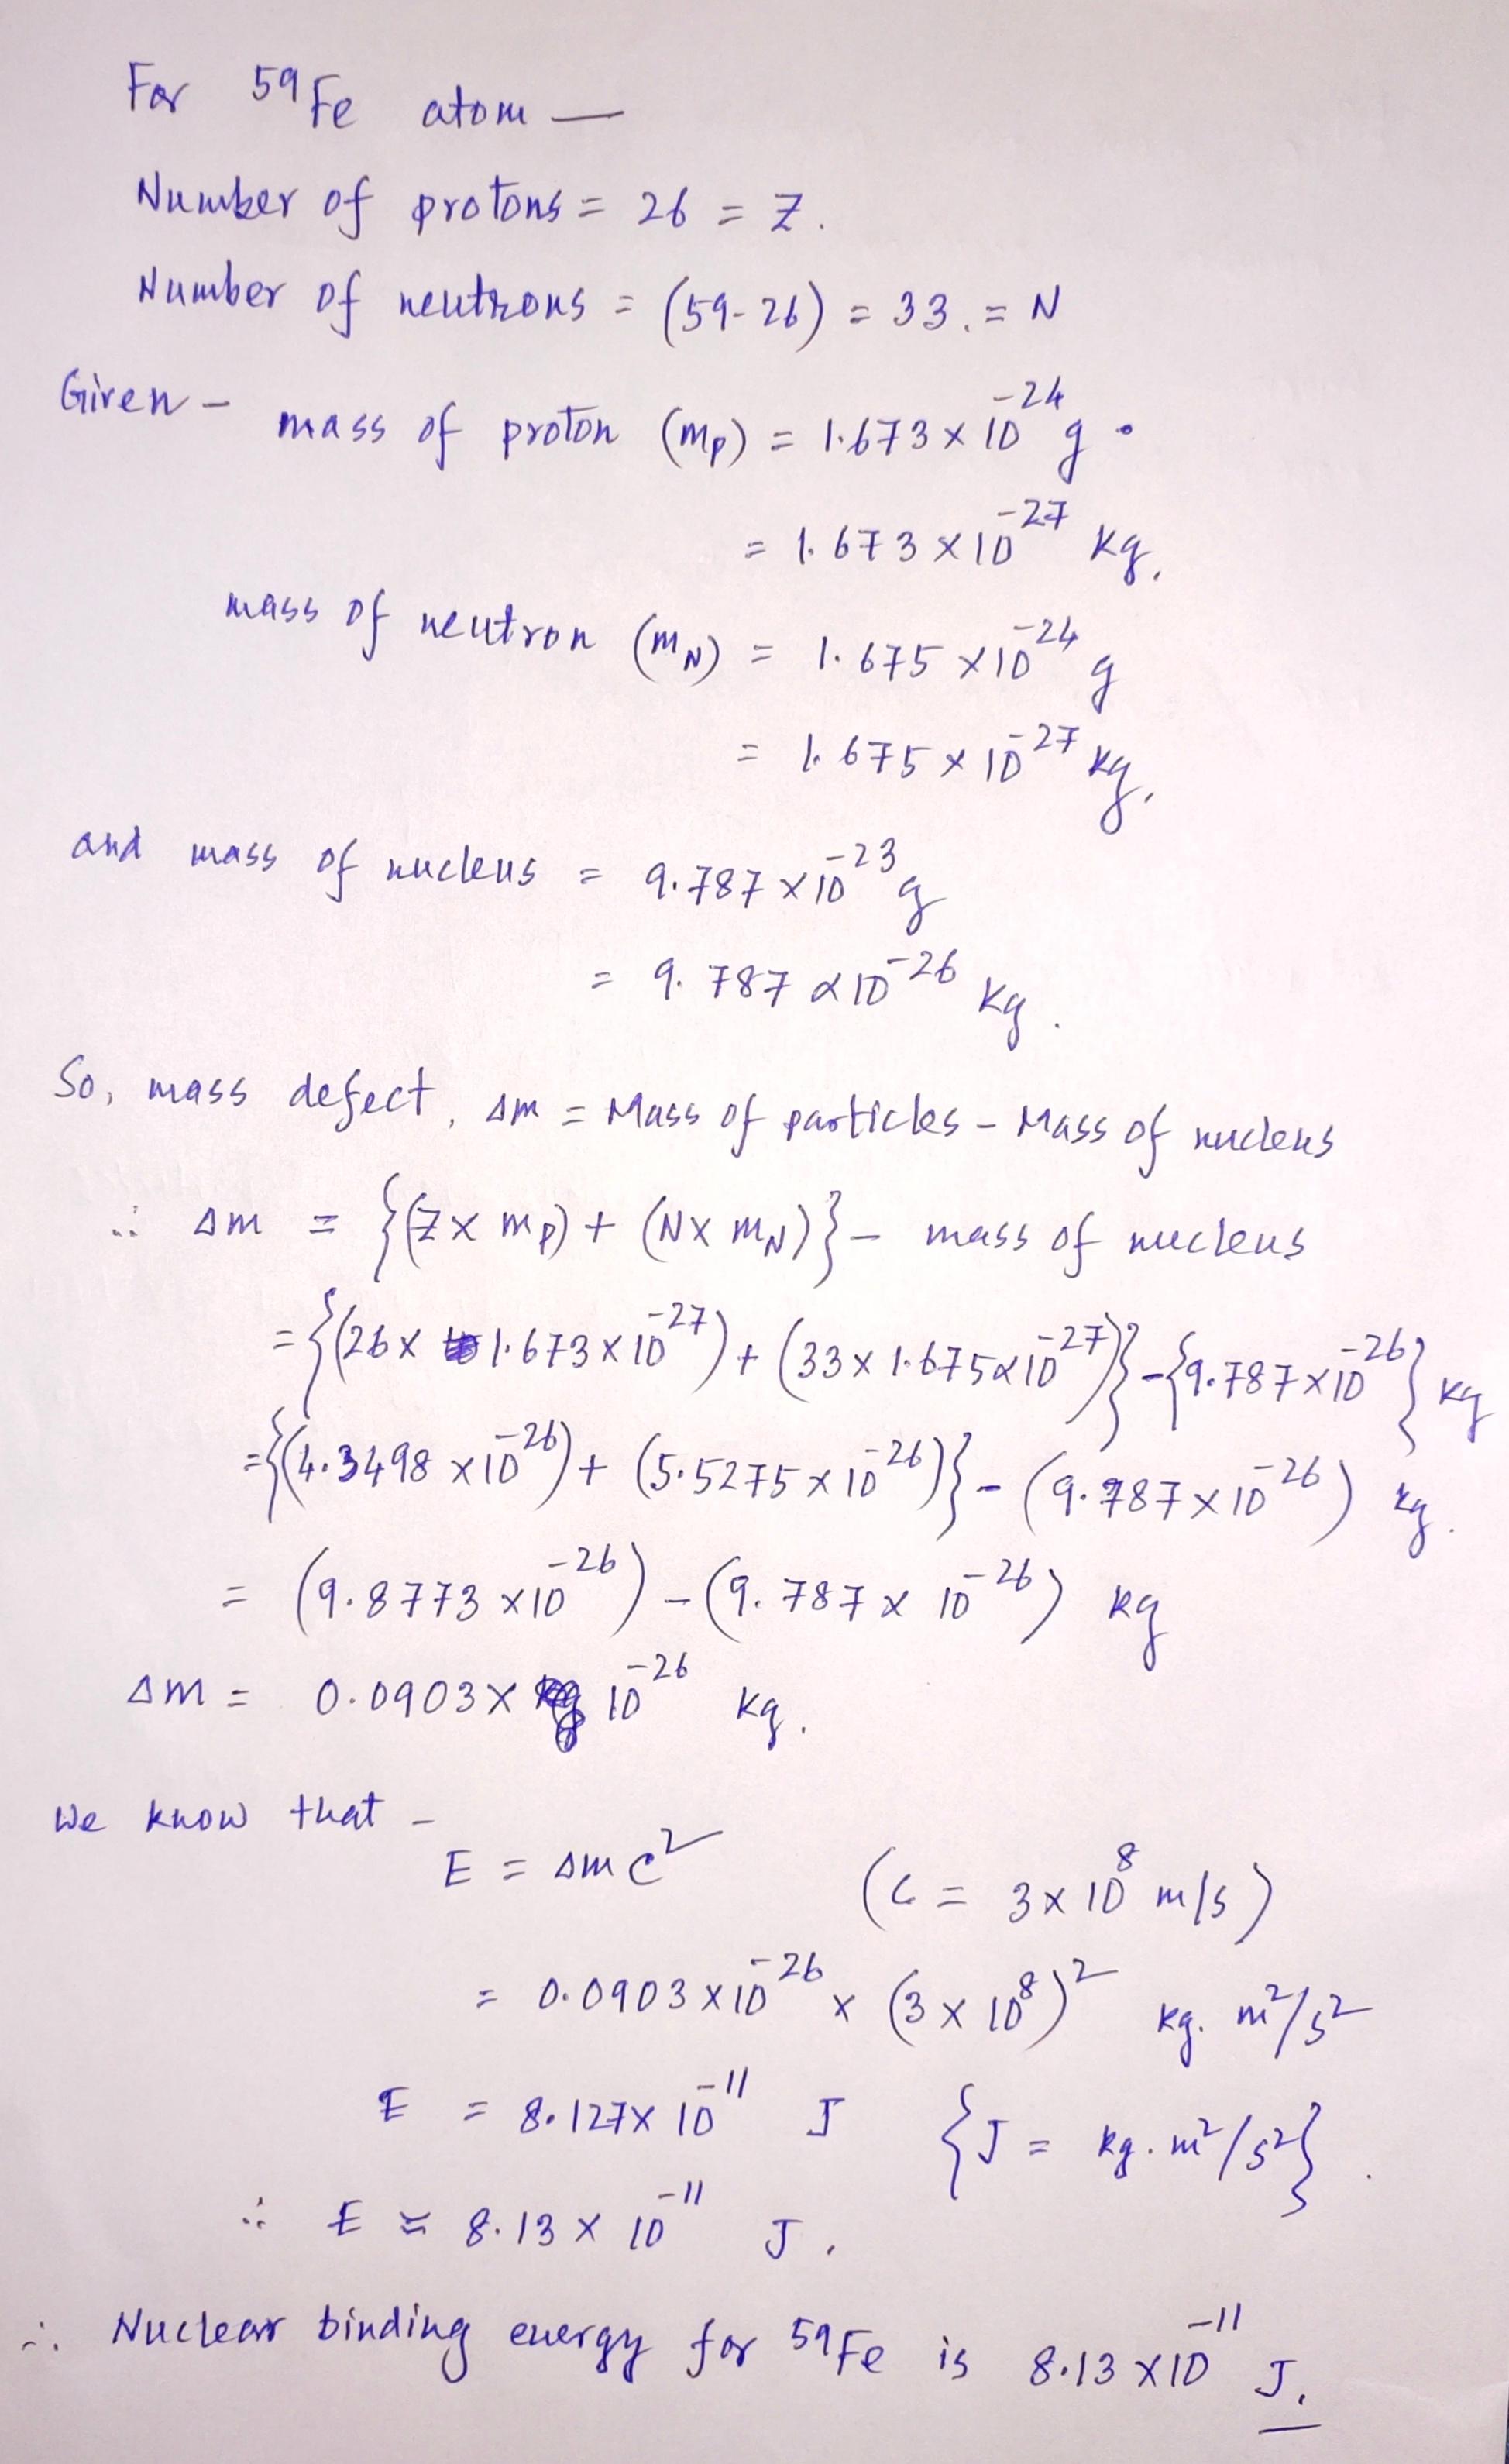 For ⁵⁹Fe atom —
Number of protons = 26 = Z.
Number of neutrons = (59-26) = 33. = N
Given - mass of proton (mp) = 1.673 × 10⁻²⁴ g.
= 1.673 × 10⁻²⁷ kg.
mass of neutron (mN) = 1.675 × 10⁻²⁴ g
= 1.675 × 10⁻²⁷ kg.
and mass of nucleus = 9.787 × 10⁻²³ g
= 9.787 × 10⁻²⁶ kg.
So, mass defect, Δm = Mass of particles - Mass of nucleus
∴ Δm = {(Z × mp) + (N × mN)} - mass of nucleus
= {(26 × 1.673 × 10⁻²⁷) + (33 × 1.675 × 10⁻²⁷)} - {9.787 × 10⁻²⁶} kg
= {(4.3498 × 10⁻²⁶) + (5.5275 × 10⁻²⁶)} - (9.787 × 10⁻²⁶) kg.
= (9.8773 × 10⁻²⁶) - (9.787 × 10⁻²⁶) kg
Δm = 0.0903 × 10⁻²⁶ kg.
We know that -
E = Δmc² (C = 3 × 10⁸ m/s)
= 0.0903 × 10⁻²⁶ × (3 × 10⁸)² kg. m²/s²
E = 8.127 × 10⁻¹¹ J {J = kg. m²/s²}.
∴ E ≈ 8.13 × 10⁻¹¹ J.
∴ Nuclear binding energy for ⁵⁹Fe is 8.13 × 10⁻¹¹ J.